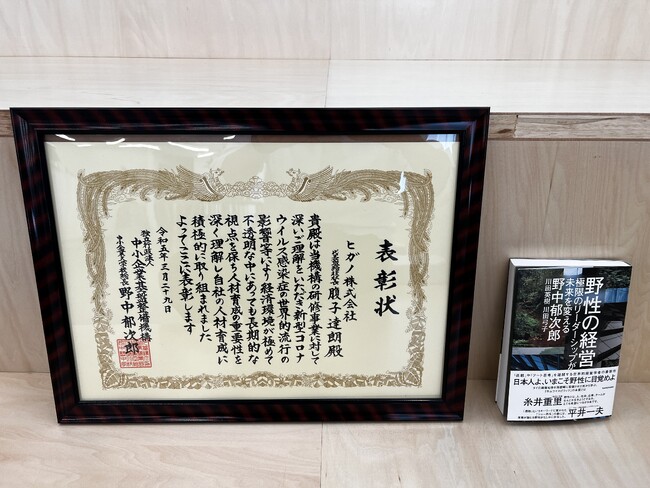 表彰状
ヒガノ株式会社
代表取締役 腹子 達朗 殿
貴殿は当機構の研修事業に対して
深いご理解をいただき新型コロナ
ウイルス感染症の世界的流行の
影響等により経済環境が極めて
不透明な中にあっても長期的な
視点を保ち人材育成の重要性を
深く理解し自社の人材育成に
積極的に取り組まれました
よってここに表彰します
令和五年三月二十九日
独立行政法人
中小企業基盤整備機構
中小企業大学校長 野中郁次郎
野性の経営
極限のリーダーシップが
未来を変える
野中郁次郎
川田英樹 川田弓子
日本人よ、いまこそ野性に目覚めよ
糸井重里
平井一夫